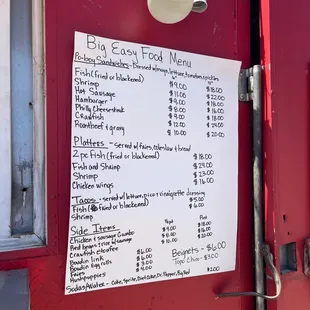 Big Easy Food Menu
Po-boy Sandwiches - Dressed w/mayo, lettuce, tomatoes, pickles
Fish (fried or blackened) $9.00 $18.00
Shrimp $11.00 $22.00
Hot Sausage $9.00 $18.00
Hamburger $8.00 $16.00
Philly Cheesesteak $9.00 $18.00
Crawfish $12.00 $24.00
Roastbeef + gravy $10.00 $20.00
Platters - served w/fries, coleslaw & bread
2 pc Fish (fried or blackened) $18.00
Fish and Shrimp $29.00
Shrimp $23.00
Chicken wings $16.00
Tacos - served w/lettuce, pico & vinaigrette dressing
Fish (fried or blackened) $5.00
Shrimp $6.00
Side Items
Chicken & sausage Gumbo
Red beans & rice w/sausage
Crawfish etouffee
Boudin link $6.00
Boudin egg rolls
Fries
Hushpuppies
Beignets - $6.00
Sodas/Water - Coke, Sprite, Diet Coke, Dr. Pepper, Big Red $2.00